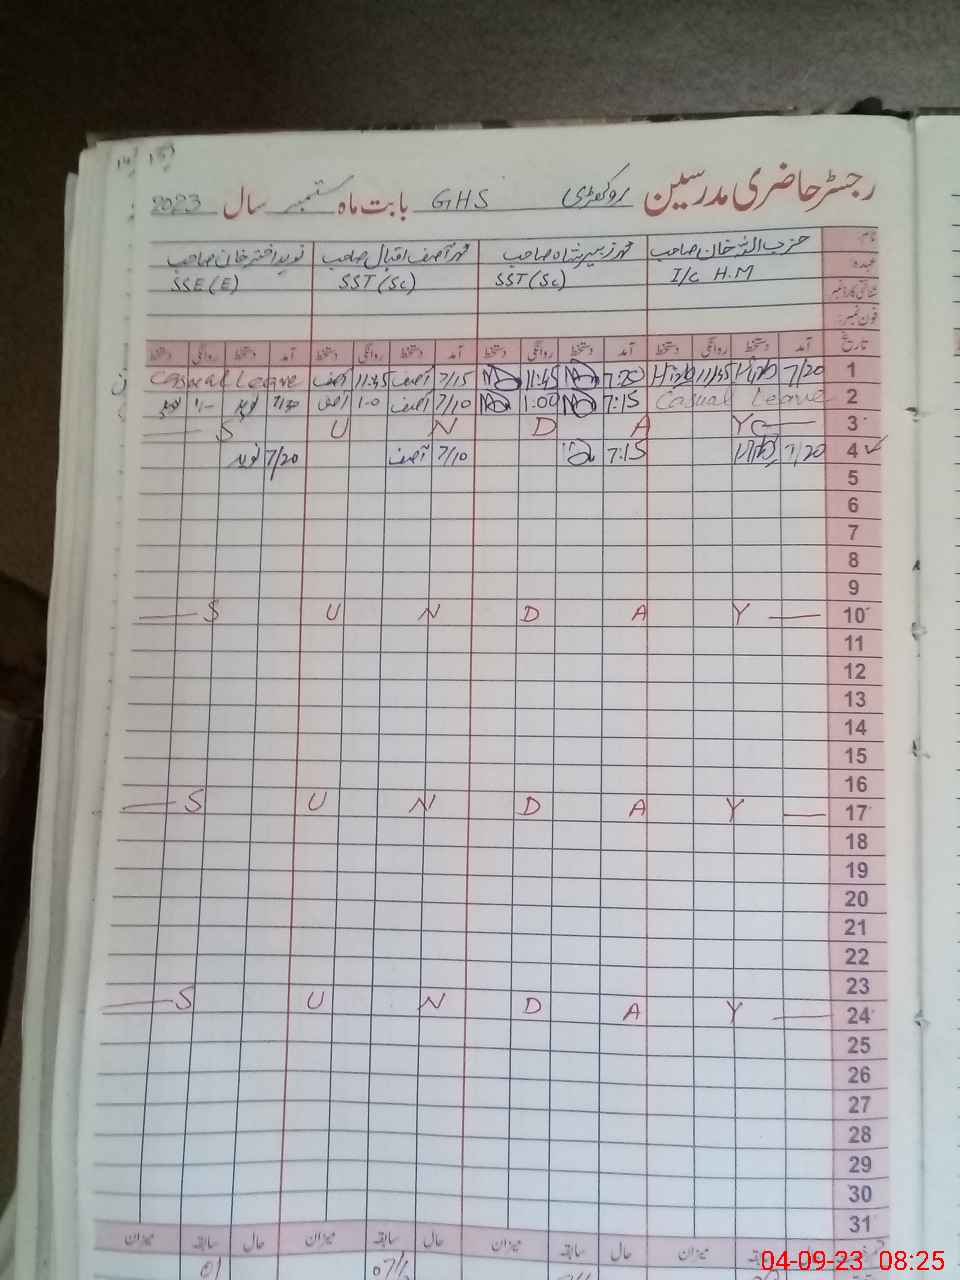 رجسٹر حاضری مدرسین روکھڑی GHS بابت ماہ ستمبر سال 2023
نام حزب اللہ خان صاحب محمد زبیر شاہ صاحب محمد آصف اقبال صاحب نوید اختر خان صاحب
عہدہ I/C H.M SST (Sc) SST (Sc) SSE (E)
شناختی کارڈ نمبر
فون نمبر
تاریخ آمد دستخط روانگی دستخط آمد دستخط روانگی دستخط آمد دستخط روانگی دستخط آمد دستخط روانگی دستخط
1 7/20 Hizb 11/45 Hizb 7:20 11:45 7/15 آصف 11:45 آصف Casual Leave
2 Casual Leave 7:15 1:00 7/10 آصف 1-0 آصف 7/20 نوید 1/- نوید
3 S U N D A Y
4 7/20 Hizb 7:15 7/10 آصف 7/20 نوید
5
6
7
8
9
10 S U N D A Y
11
12
13
14
15
16
17 S U N D A Y
18
19
20
21
22
23
24 S U N D A Y
25
26
27
28
29
30
31
حال سابقہ میزان حال سابقہ میزان حال سابقہ میزان حال سابقہ میزان
01
04-09-23 08:25